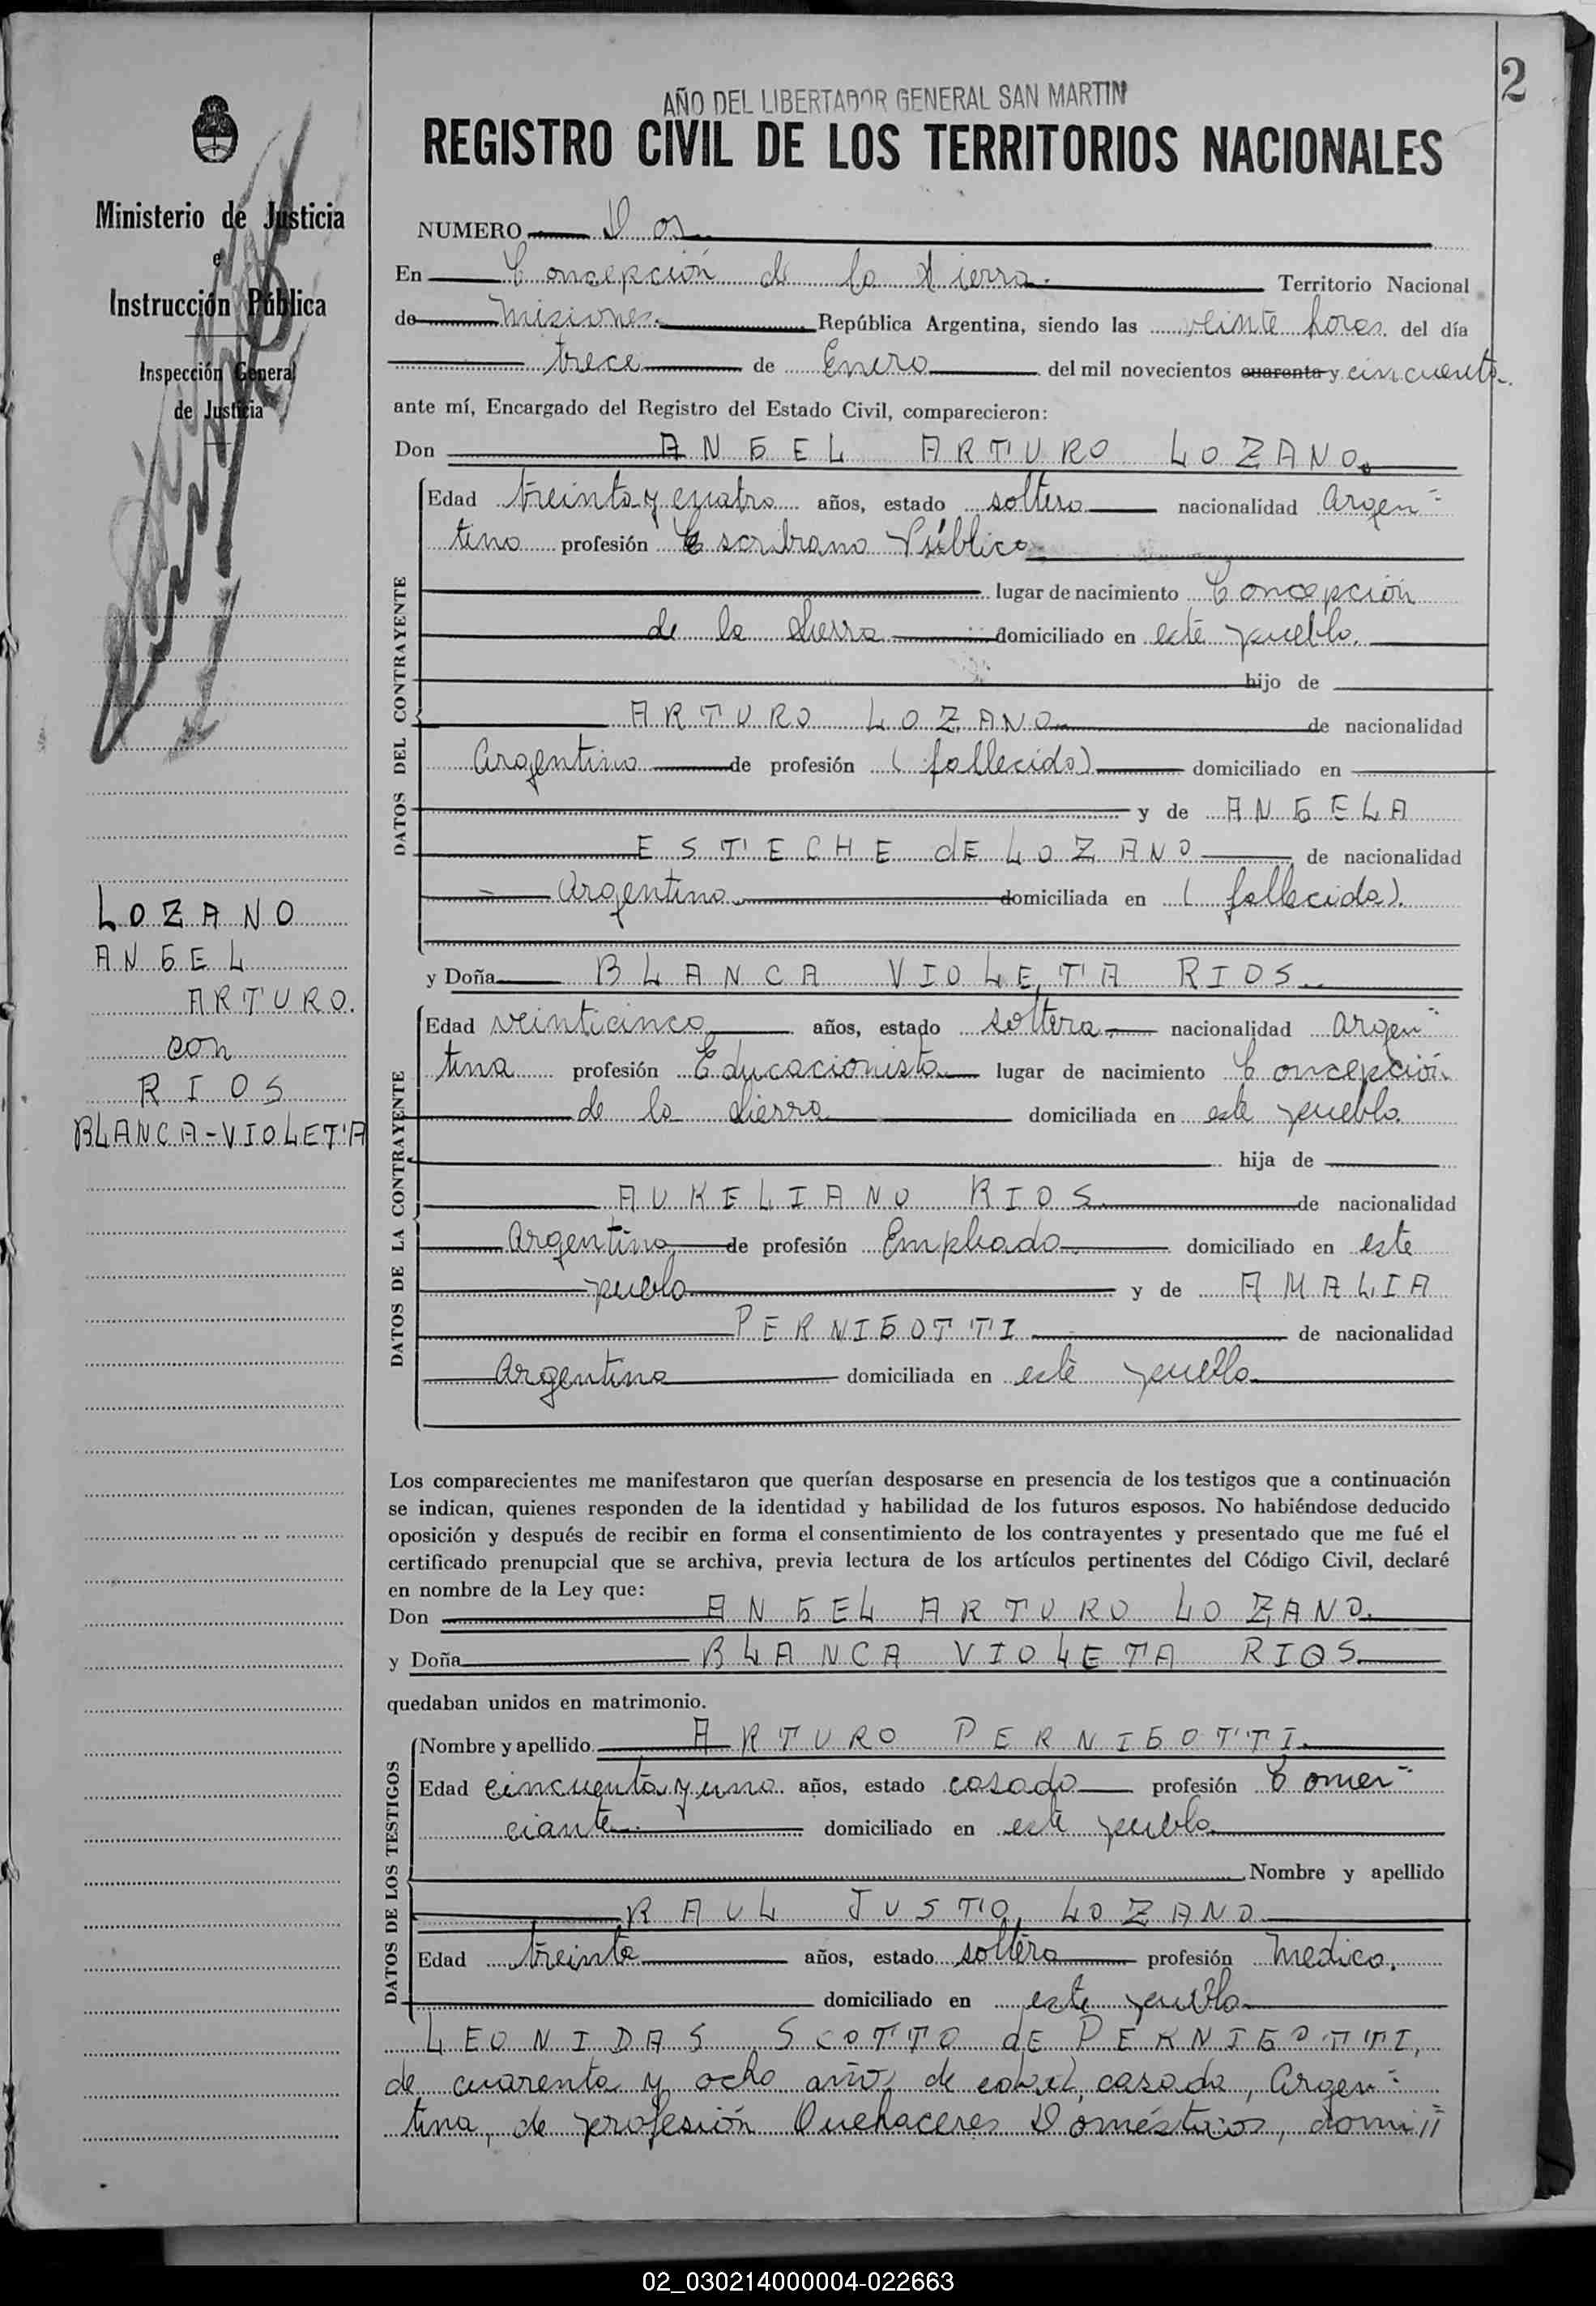 2
AÑO DEL LIBERTADOR GENERAL SAN MARTIN
REGISTRO CIVIL DE LOS TERRITORIOS NACIONALES
Ministerio de Justicia
e
Instrucción Pública
Inspección General
de Justicia
LOZANO
ANGEL
ARTURO.
con
RIOS
BLANCA-VIOLETA
NUMERO Dos
En Concepción de la Sierra. Territorio Nacional
de Misiones. República Argentina, siendo las veinte horas. del día
trece de Enero del mil novecientos cuarenta y cincuenta.
ante mí, Encargado del Registro del Estado Civil, comparecieron:
Don ANGEL ARTURO LOZANO.
DATOS DEL CONTRAYENTE
Edad treinta y cuatro años, estado soltero nacionalidad Argen=
tino profesión Escribano Público
lugar de nacimiento Concepción
de la Sierra domiciliado en este pueblo.
hijo de
ARTURO LOZANO de nacionalidad
Argentino de profesión (fallecido) domiciliado en
y de ANGELA
ESTECHE dE LOZANO de nacionalidad
= Argentina. domiciliada en (fallecida).
y Doña BLANCA VIOLETA RIOS.
DATOS DE LA CONTRAYENTE
Edad veinticinco años, estado soltera nacionalidad argen=
tina profesión Educacionista lugar de nacimiento Concepción
de la Sierra domiciliada en este pueblo.
hija de
AURELIANO RIOS. de nacionalidad
Argentino de profesión Empleado. domiciliado en este
pueblo y de AMALIA
PERNIGOTTI de nacionalidad
Argentina domiciliada en este pueblo
Los comparecientes me manifestaron que querían desposarse en presencia de los testigos que a continuación
se indican, quienes responden de la identidad y habilidad de los futuros esposos. No habiéndose deducido
oposición y después de recibir en forma el consentimiento de los contrayentes y presentado que me fué el
certificado prenupcial que se archiva, previa lectura de los artículos pertinentes del Código Civil, declaré
en nombre de la Ley que:
Don ANGEL ARTURO LOZANO.
y Doña BLANCA VIOLETA RIOS.
quedaban unidos en matrimonio.
DATOS DE LOS TESTIGOS
Nombre y apellido ARTURO PERNIGOTTI.
Edad cincuenta y uno años, estado casado profesión Comer=
ciante. domiciliado en este pueblo
Nombre y apellido
RAUL JUSTO LOZANO
Edad treinta años, estado soltero profesión Medico.
domiciliado en este pueblo
LEONIDAS SCOTTO dE PERNIGOTTI,
de cuarenta y ocho años de edad, casada, Argen=
tina, de profesión Quehaceres Domésticos, domi//
02_030214000004-022663